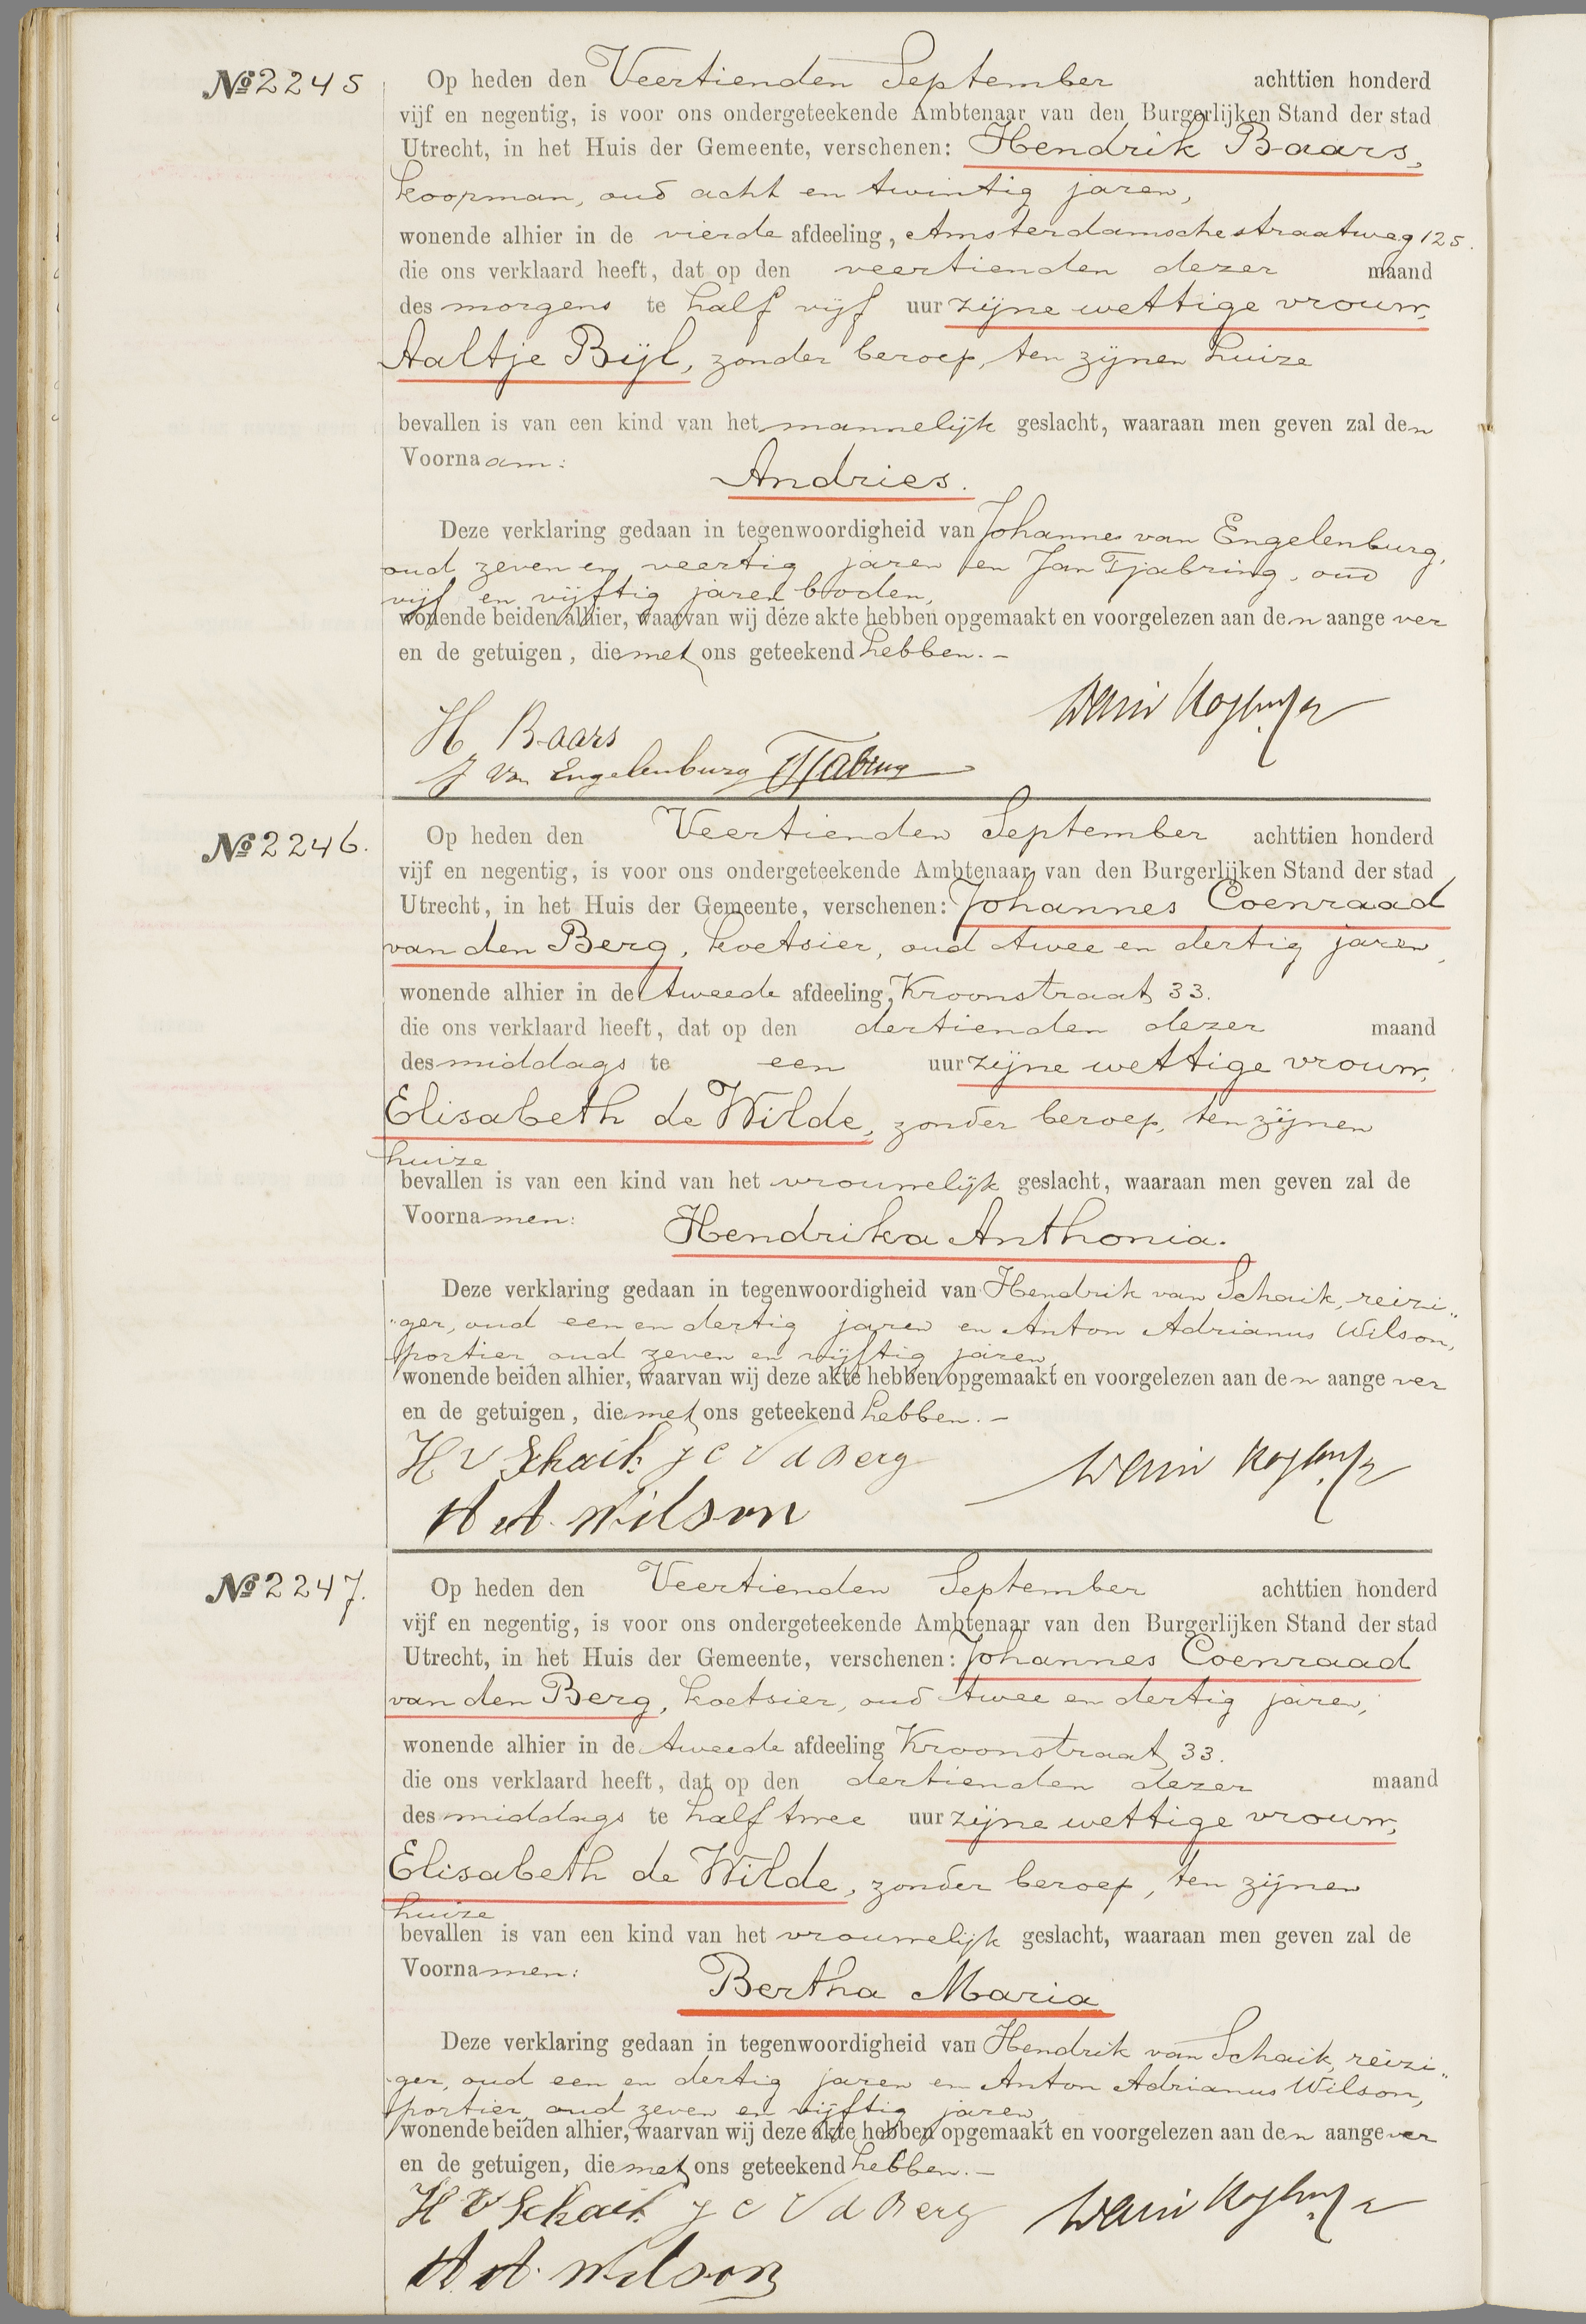 № 2245 Op heden den Veertienden September achttien honderd
vijf en negentig, is voor ons ondergeteekende Ambtenaar van den Burgerlijken Stand der stad
Utrecht, in het Huis der Gemeente, verschenen: Hendrik Baars,
koopman, oud acht en twintig jaren,
wonende alhier in de vierde afdeeling, Amsterdamschestraatweg 125.
die ons verklaard heeft, dat op den veertienden dezer maand
des morgens te half vijf uur zijne wettige vrouw,
Aaltje Bijl, zonder beroep, ten zijnen huize
bevallen is van een kind van het mannelijk geslacht, waaraan men geven zal den
Voornaam:
Andries.
Deze verklaring gedaan in tegenwoordigheid van Johannes van Engelenburg,
oud zeven en veertig jaren en Jan Tjabring, oud
vijf en vijftig jaren boden,
wonende beiden alhier, waarvan wij deze akte hebben opgemaakt en voorgelezen aan den aangever
en de getuigen, die met ons geteekend hebben. –
H Baars
J van Engelenburg JTjabring
№ 2246. Op heden den Veertienden September achttien honderd
vijf en negentig, is voor ons ondergeteekende Ambtenaar van den Burgerlijken Stand der stad
Utrecht, in het Huis der Gemeente, verschenen: Johannes Coenraad
van den Berg, koetsier, oud twee en dertig jaren,
wonende alhier in de tweede afdeeling, Kroonstraat 33.
die ons verklaard heeft, dat op den dertienden dezer maand
des middags te een uur zijne wettige vrouw,
Elisabeth de Wilde, zonder beroep, ten zijnen
huize
bevallen is van een kind van het vrouwelijk geslacht, waaraan men geven zal de
Voornamen:
Hendrika Anthonia.
Deze verklaring gedaan in tegenwoordigheid van Hendrik van Schaik, reizi„
„ger, oud een en dertig jaren en Anton Adrianus Wilson,
portier, oud zeven en vijftig jaren,
wonende beiden alhier, waarvan wij deze akte hebben opgemaakt en voorgelezen aan den aangever
en de getuigen, die met ons geteekend hebben. –
H v Schaik J C V d Berg
A A. Wilson
№ 2247. Op heden den Veertienden September achttien honderd
vijf en negentig, is voor ons ondergeteekende Ambtenaar van den Burgerlijken Stand der stad
Utrecht, in het Huis der Gemeente, verschenen: Johannes Coenraad
van den Berg, koetsier, oud twee en dertig jaren,
wonende alhier in de tweede afdeeling Kroonstraat 33.
die ons verklaard heeft, dat op den dertienden dezer maand
des middags te half twee uur zijne wettige vrouw,
Elisabeth de Wilde, zonder beroep, ten zijnen
huize
bevallen is van een kind van het vrouwelijk geslacht, waaraan men geven zal de
Voornamen:
Bertha Maria
Deze verklaring gedaan in tegenwoordigheid van Hendrik van Schaik, reizi„
ger, oud een en dertig jaren en Anton Adrianus Wilson,
portier, oud zeven en vijftig jaren,
wonende beiden alhier, waarvan wij deze akte hebben opgemaakt en voorgelezen aan den aangever
en de getuigen, die met ons geteekend hebben. –
H V Schaik J C V d Berg
A A. Wilson